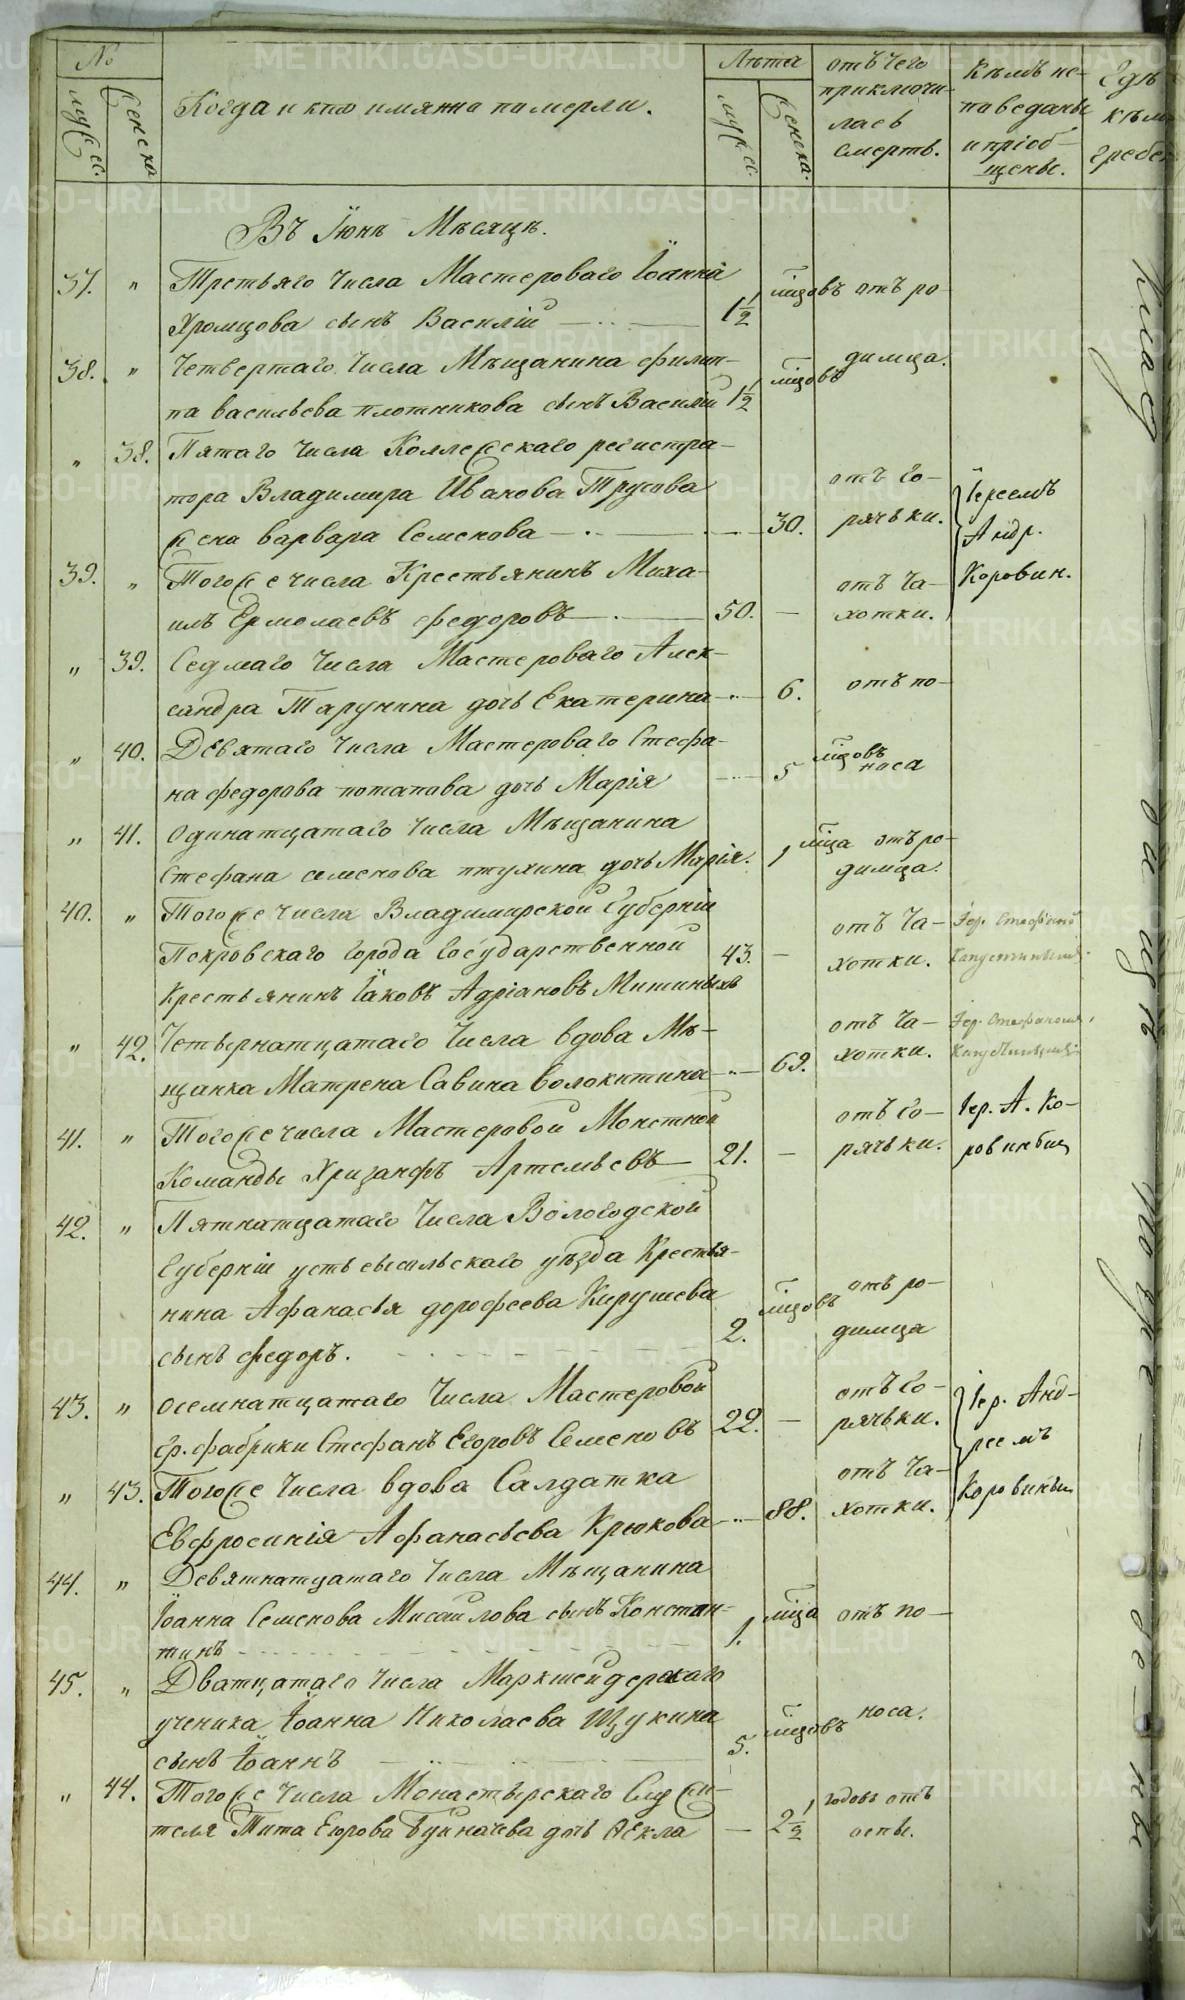 №
мужеск.
женска
Когда и кто имянно померли.
Лѣта
мужеск.
женска.
отъ чего
приключи-
лась
смерть.
Кѣмъ ис-
поведаны
и пріоб-
щены.
Гдѣ
кѣмъ
гребен
Въ Іюнѣ Мѣсяцѣ.
37. " Третьяго числа Мастероваго Іоанна
Хромцова сынъ Василій 1 1/2 мцовъ отъ ро-
38. " Четвертаго числа Мѣщанина Филип-
па васильева плотникова сынъ Василій 1 1/2 мцовъ димца.
" 38. Пятаго числа Коллежскаго регистра-
тора Владимира Иванова Трусова
жена варвара Семенова 30. отъ го-
рячьки. Іереемъ
Андр.
39. " Тогоже числа Крестьянинъ Миха-
илъ Ермолаевъ федоровъ 50. — отъ ча-
хотки. Коровин.
" 39. Седмаго числа Мастероваго Алек-
сандра Тарунина дочь Екатерина 6. отъ по-
" 40. Девятаго числа Мастероваго Стефа-
на федорова потапова дочь Марія 5 мцовъ носа
" 41. Одинатцатаго числа Мѣщанина
Стефана семенова птухина дочь Марія. 1 мца отъ ро-
димца.
40. " Тогоже числа Владимирской Губерніи
Покровскаго города Государственной
Крестьянинъ Іаковъ Адріановъ Митиныхъ 43. — отъ ча-
хотки. Іер.
" 42. Четырнатцатаго числа вдова Мѣ-
щанка Матрена Савина волокитина 69. отъ ча-
хотки. Іер.
41. " Тогоже числа Мастеровой Монетной
Команды Хрисанфъ Артемьевъ 21. — отъ го-
рячьки. Іер. А. Ко-
ровинъ
42. " Пятнатцатаго числа Вологодской
Губерніи усть сысольскаго уѣзда Крестья-
нина Афанасья дорофеева Кирушева
сынъ федоръ. 2. мцовъ отъ ро-
димца
43. " осемнатцатаго числа Мастеровой
гр. фабрики Стефанъ Егоровъ Семеновъ 22. — отъ го-
рячьки. Іер. Анд-
реемъ
" 43. Тогоже числа вдова Салдатка
Евфросинія Афанасьева Крюкова 88. отъ ча-
хотки. Коровинымъ
44. " Девятнатцатаго числа Мѣщанина
Іоанна Семенова Мисаилова сынъ Констан-
тинъ 1. мца отъ по-
45. " Дватцатаго числа Маркшейдерскаго
ученика Іоанна Николаева Щукина
сынъ Іоаннъ 5. мцовъ носа.
" 44. Тогоже числа Монастырскаго Служи-
теля Тита Егорова дочь Ѳекла — 2 1/2 годовъ отъ
оспы.
METRIKI.GASO-URAL.RU